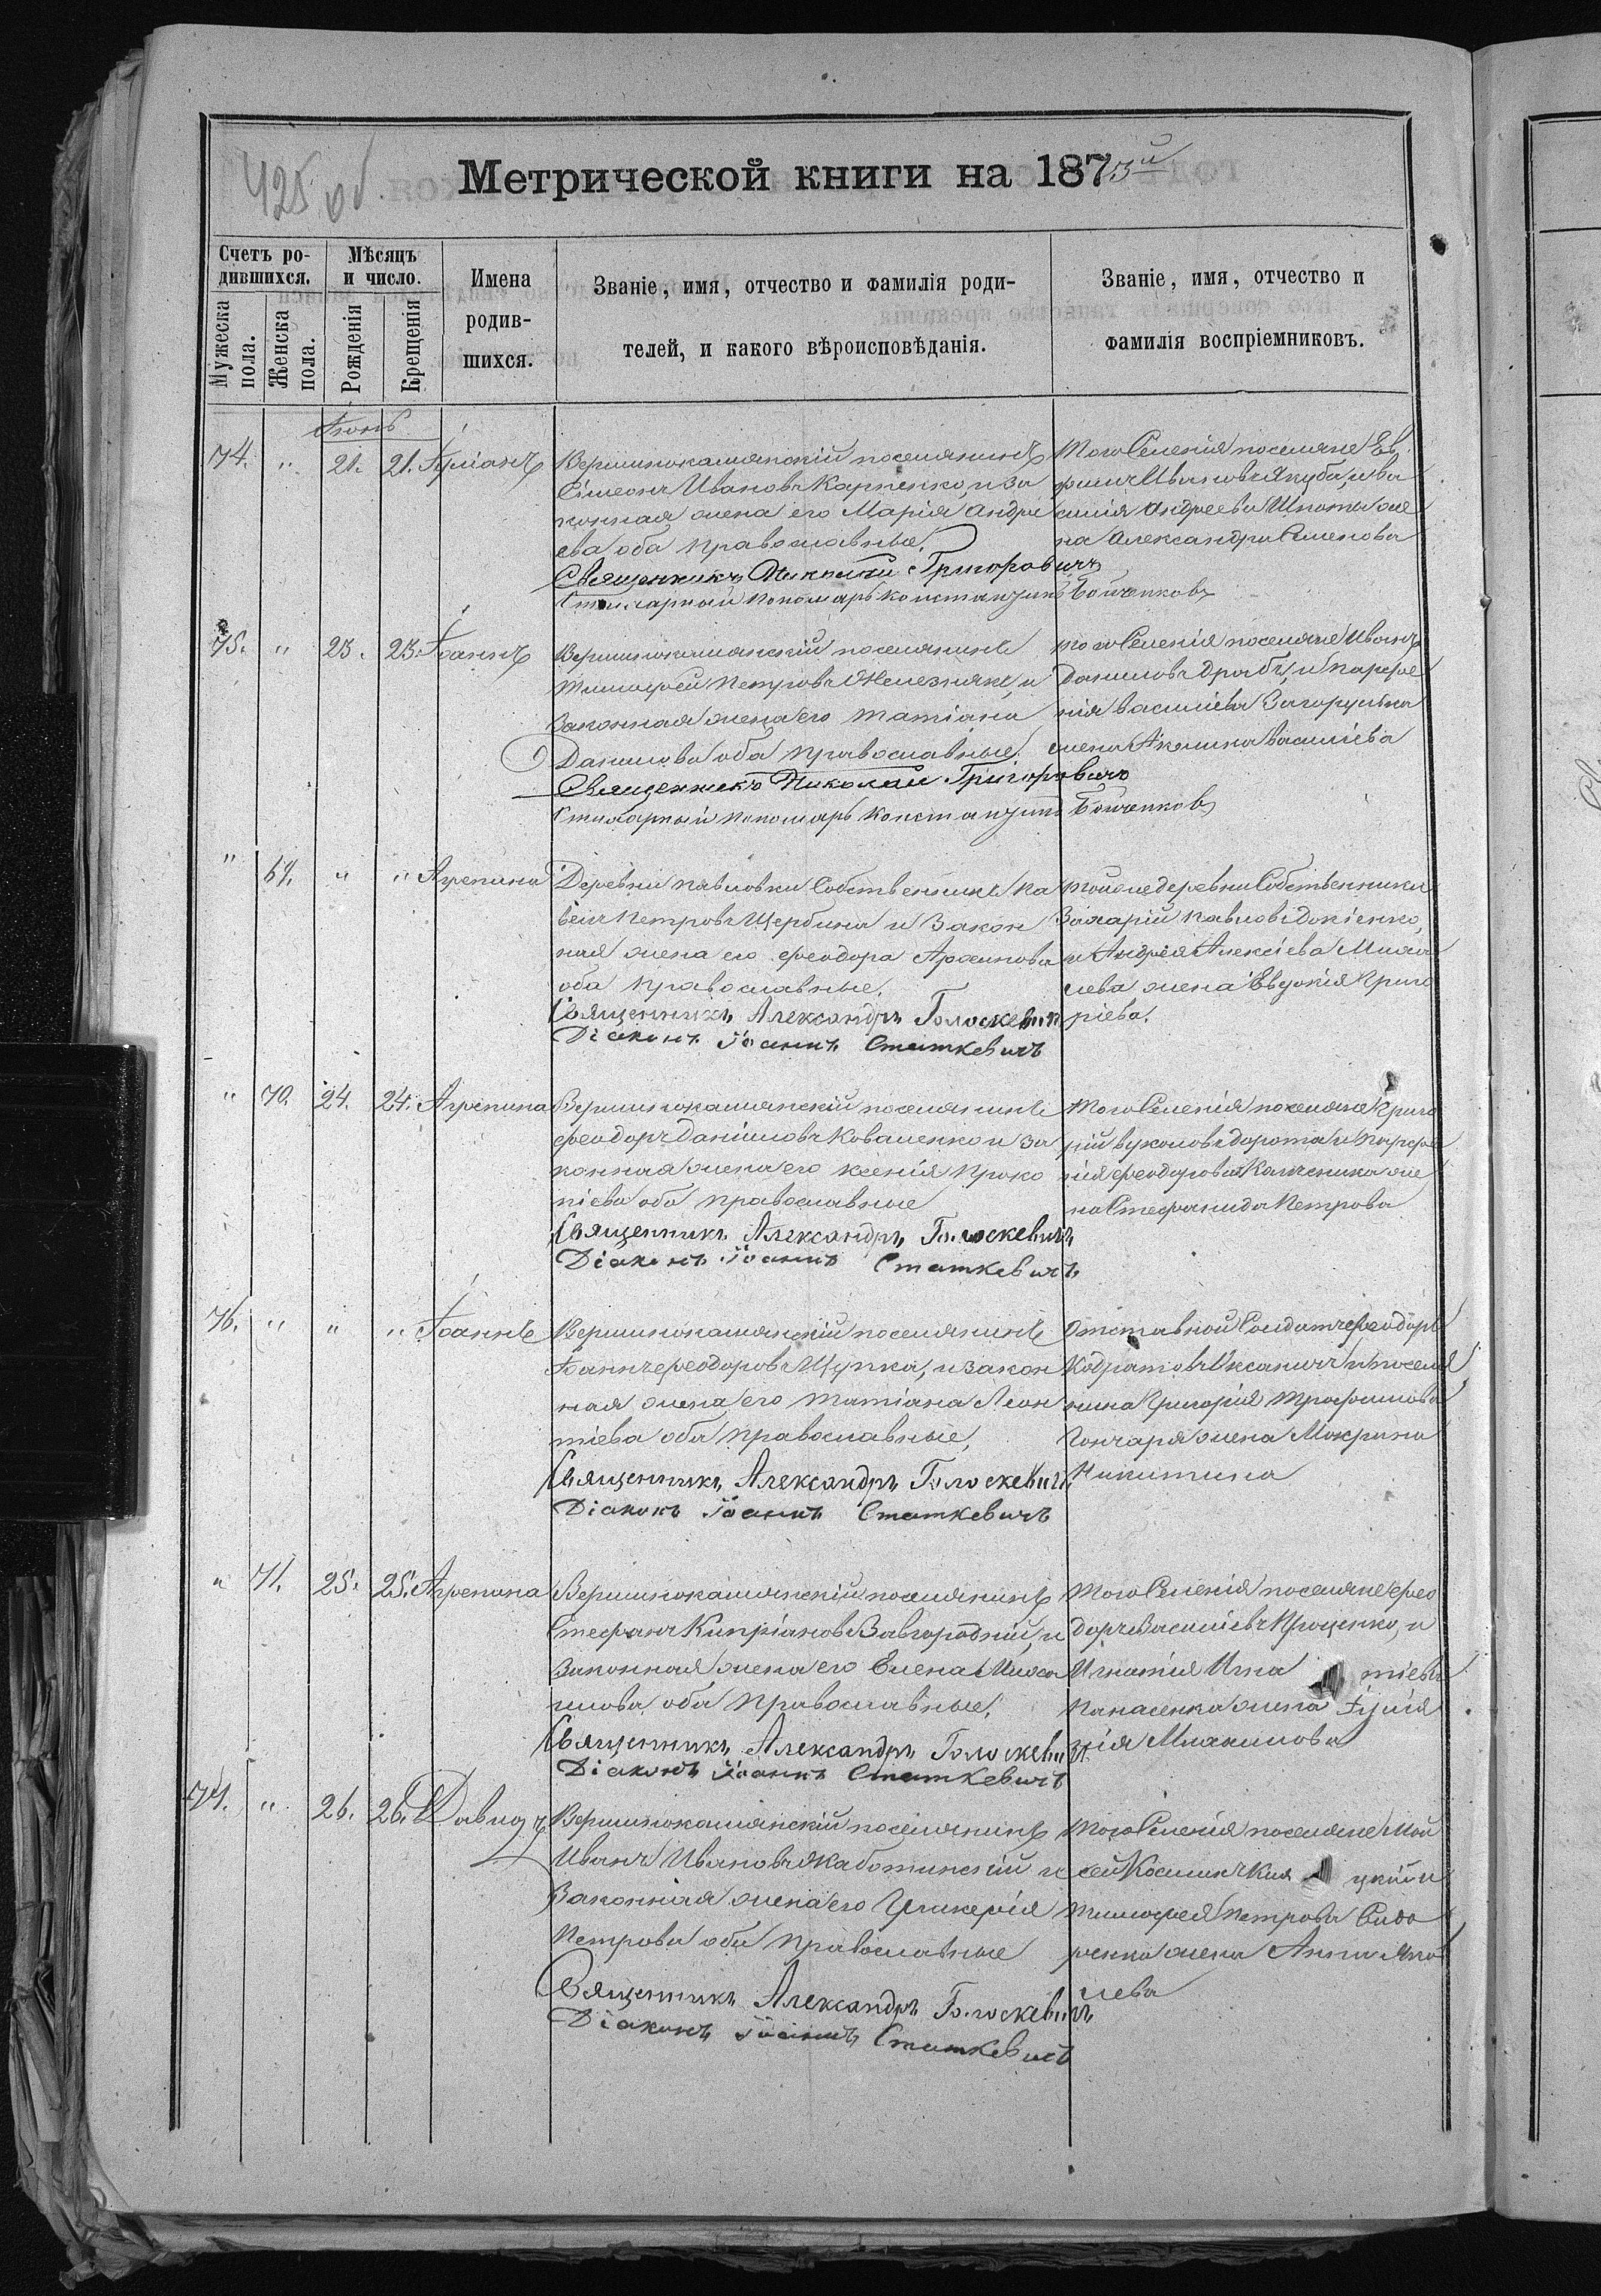 425 об
Метрической книги на 1873й
Счетъ ро-
дившихся.
Мужеска
пола.
Женска
пола.
Мѣсяцъ
и число.
Рожденія
Крещенія
Имена
родив-
шихся.
Званіе, имя, отчество и фамилія роди-
телей, и какого вѣроисповѣданія.
Званіе, имя, отчество и
фамилія воспріемниковъ.
Іюнь
74. " 21. 21. Іуліанъ
Вершинокамянскій поселянинъ
Сімеонъ Ивановъ Карпенко, и за
конная жена его Марія Андре
ева оба православные.
Священникъ Николай Григоровичъ
Стихарный пономарь Константинъ Бойченковъ
Того Селенія поселяне Ев
фимъ Ивановъ Якуба, и Ва
силія Андреева Шпоты же
на Александра Семенова
75. " 23. 23. Іоаннъ
Вершинокамянскій поселянинъ
Тимофей Петровъ Железнякъ, и
Законная жена его Татіана
Данилова оба православные.
Священникъ Николай Григоровичъ
Стихарный пономарь Константинъ Бойченковъ
того Селенія поселяне Иванъ
Даниловъ Драбъ, и Парфе
нія Васильева Загорулька
жена Акилина Васильева
" 69. " " Агрепина
Деревни Павловки Собственникъ Па
велъ Петровъ Щербина и Закон
ная жена его Феодора Архипова
оба православные.
Священникъ Александръ Голоскевичъ
Діаконъ Іоаннъ Статкевичъ
тойже деревни Собственники
Захарій Павловъ Докіенко,
и Андрея Алексіева Миха
лева жена Евдокія Григо
ріева.
" 70. 24. 24. Агрепина
Вершинокамянскій поселянинъ
Феодоръ Даніиловъ Коваленко и за
конная жена его Ксенія Проко
піева оба православные
Священникъ Александръ Голоскевичъ
Діаконъ Іоаннъ Статкевичъ
Того Селенія поселяне Григо
рій Вуколовъ Дорота и Парфе
нія Феодорова же
на Стефанида Петрова
76. " " " Іоаннъ
Вершинокамянскій поселянинъ
Іоаннъ Феодоровъ Щупка, и закон
ная жена его Татіана Леон
тіева оба православные.
Священникъ Александръ Голоскевичъ
Діаконъ Іоаннъ Статкевичъ
Отставной Солдатъ Феодоръ
Кодратовъ и поселя
нина Григорія Трофимова
Гончаря жена Макрина
Никитина
" 71. 25. 25. Агрепина
Вершинокамянскій поселянинъ
Стефанъ Кипріановъ Завгородній, и
Законная жена его Елена Миха
илова, оба православные.
Священникъ Александръ Голоскевичъ
Діаконъ Іоаннъ Статкевичъ
Того Селенія поселяне Фео
доръ Васильевъ Проценко, и
Игнатія Игна тіева
Панасенка жена Гули
Михаилова
77. " 26. 26. Давидъ
Вершинокамянскій поселянинъ
Иванъ Ивановъ Жаботинскій и
Законная жена его Гликерія
Петрова оба православные
Священникъ Александръ Голоскевичъ
Діаконъ Іоаннъ Статкевичъ
Того Селенія поселяне Мои
сей Косминъ Кия цкій и
Тимофея Петрова Сидо
ренка жена Анна Яков
лева